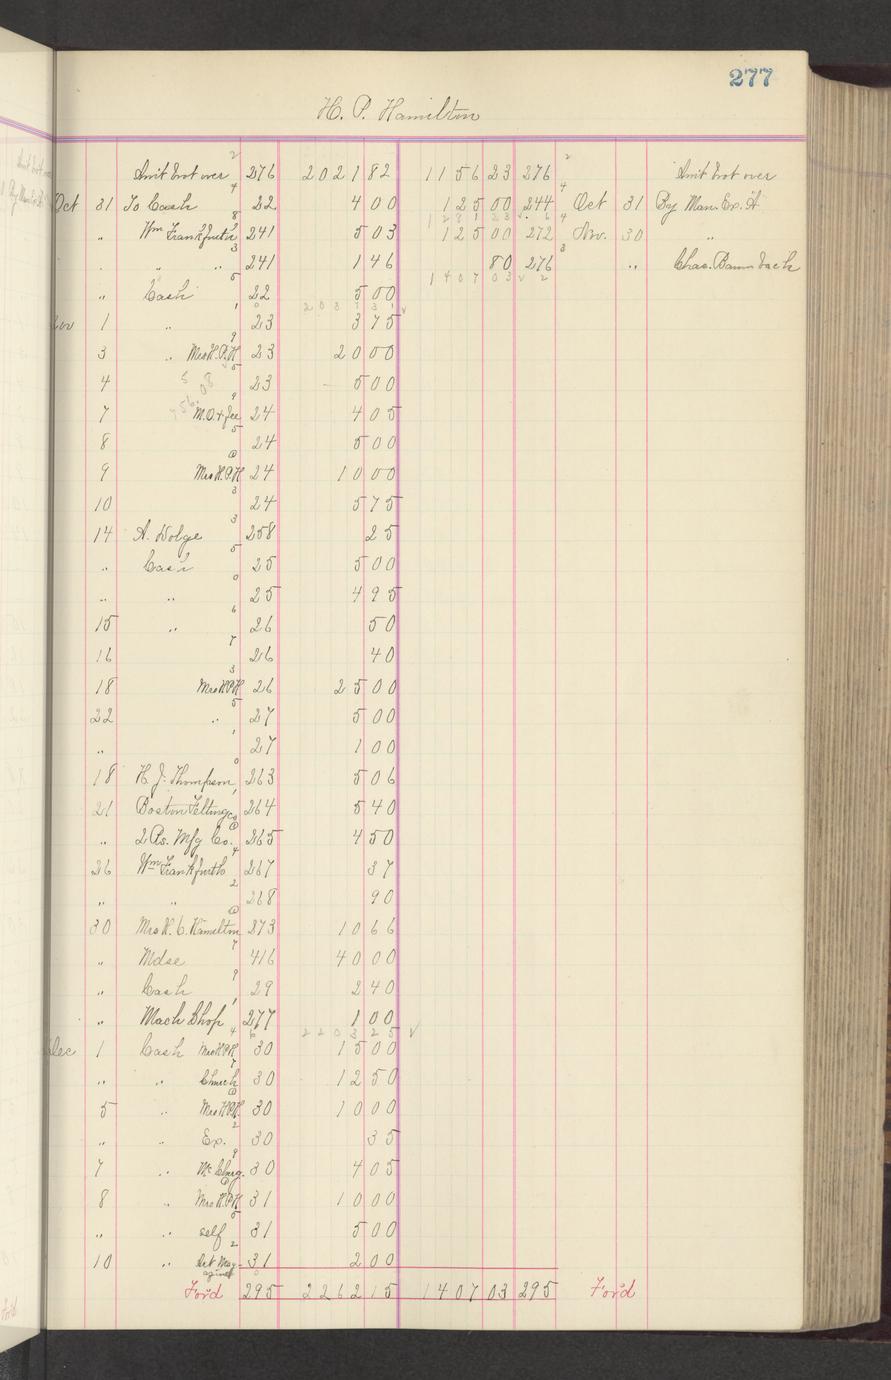 277
H. P. Hamilton
Amt brot over 276 2021 82 1156 23 276 Amt brot over
Oct 31 To Cash 22 4 00 125 00 244 Oct 31 By Man. Ex. A
" Wm Frankfurth 241 5 03 125 00 272 Nov. 30 "
" " 241 1 46 80 276 " Chas. Baumbach
1407 03
" Cash 22 5 00
2031 31
1 " 23 3 75
3 " Mrs H.P.H 23 20 00
4 23 5 00
7 M.O. & fee 24 4 05
8 24 5 00
9 Mrs H.P.H 24 10 00
10 24 5 75
14 A. Dolge 258 25
" Cash 25 5 00
" " 25 4 95
15 " 26 50
16 26 40
18 Mrs H.P.H 26 25 00
22 " 27 5 00
" 27 1 00
18 H. J. Thompson 263 5 06
21 Boston Felting Co 264 5 40
" 2 Rs. Mfg Co. 265 4 50
26 Wm Frankfurth 267 37
" " 268 90
30 Mrs H. C. Hamilton 273 10 66
" Mdse 416 40 00
" Cash 29 2 40
" Mach Shop 277 1 00
2203 25
Dec 1 Cash Mrs H.P.H 30 15 00
" " Church 30 12 50
5 " Mrs H.P.H. 30 10 00
" " Ex. 30 35
7 " 30 4 05
8 " Mrs H.P.H 31 10 00
" " self 31 5 00
10 " 31 2 00
Ford 295 2262 15 1407 03 295 Ford